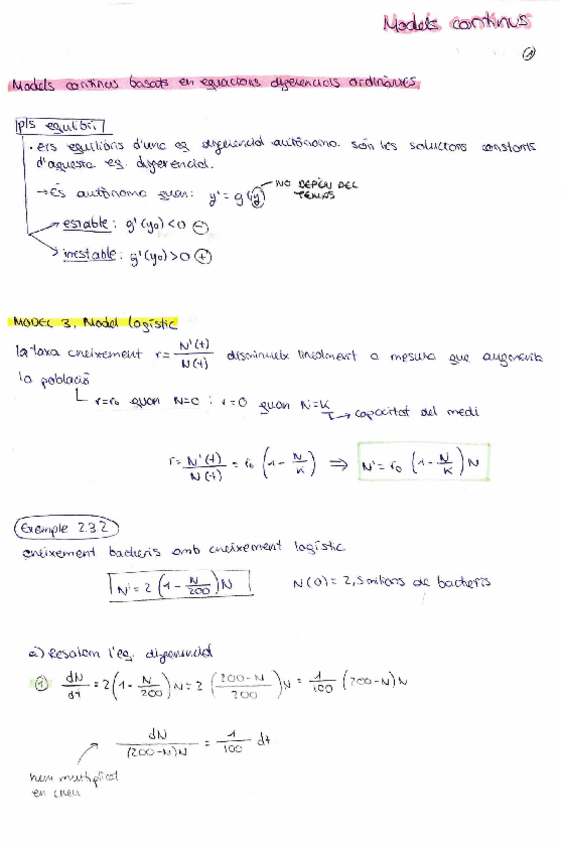 Models continus
1
Models continus basats en equacions diferencials ordinàries
pts equilibri
· Els equilibris d'una eq diferencial autònoma són les solucions constants
d'aquesta eq. diferencial.
→ És autònoma quan: y' = g(y) → NO DEPÈN DEL
TEMPS
→ estable: g'(y₀) < 0 ⊖
→ inestable: g'(y₀) > 0 ⊕
MODEL 3. Model logístic
la taxa creixement r = N'(t) / N(t) disminueix linealment a mesura que augmenta
la població
r = r₀ quan N = 0 ; r = 0 quan N = K
→ capacitat del medi
r = N'(t) / N(t) = r₀ (1 - N/K) ⇒ N' = r₀ (1 - N/K) N
Exemple 2.3.2
creixement bacteris amb creixement logístic
N' = 2 (1 - N/200) N N(0) = 2,5 milions de bacteris
a) Resolem l'eq. diferencial
① dN/dt = 2 (1 - N/200) N = 2 (200-N / 200) N = 1/100 (200-N) N
dN / (200-N)N = 1/100 dt
hem multiplicat
en creu